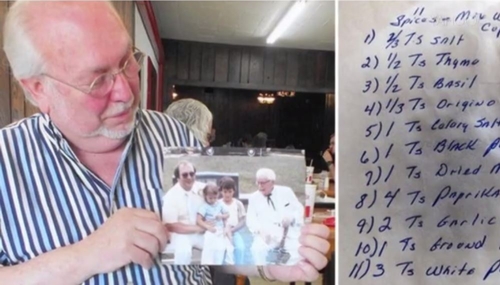 11 Spices - Mix w
Cup
1) ⅔ Ts Salt
2) ½ Ts Thyme
3) ½ Ts Basil
4) ⅓ Ts Origino
5) 1 Ts Celery Salt
6) 1 Ts Black p
7) 1 Ts Dried m
8) 4 Ts Paprika
9) 2 Ts Garlic
10) 1 Ts Ground
11) 3 Ts White p